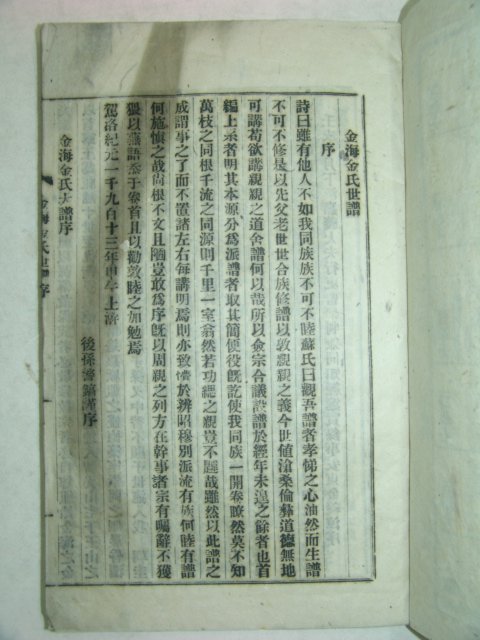 金海金氏世譜
序
詩曰雖有他人不如我同族族不可不睦蘇氏曰觀吾譜者孝悌之心油然而生譜
不可不修是以先父老世世合族修譜以敦親親之義今世値滄桑倫彝道德無地
可講苟欲講親親之道舍譜何以哉所以僉宗合議設譜於經年未遑之餘者也首
編上系者明其本源分爲派譜者取其簡便役旣訖使我同族一開卷瞭然莫不知
萬枝之同根千流之同源則千里一室翕然若功緦之親豈不韙哉雖然以此譜之
成謂事之了而不置諸左右每講明焉則亦致 於辨昭穆別派流有族何睦有譜
何施愼之哉尙根不文且陋豈敢爲序旣以周親之列方在幹事諸宗有囑辭不獲
猥以蕪語忝于卷首且以勸敦睦之加勉焉
駕洛紀元一千九百十三年甲午上澣
後孫 謹序
金海金氏世譜序
金海金氏世譜序